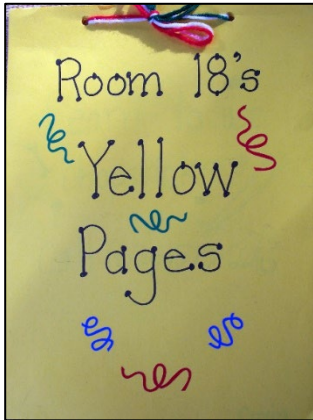 Room 18's
Yellow
Pages